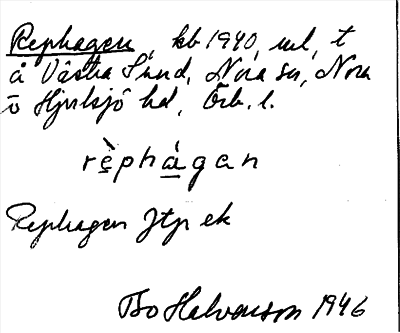 Rephagen, kb 1940, uul, t
å Västra Sund, Nora sn, Nora
o Hjulsjö hd, Örb. l.
rè̱phá̱gan
Rephagen Jtp ek
Bo Halvarson 1946